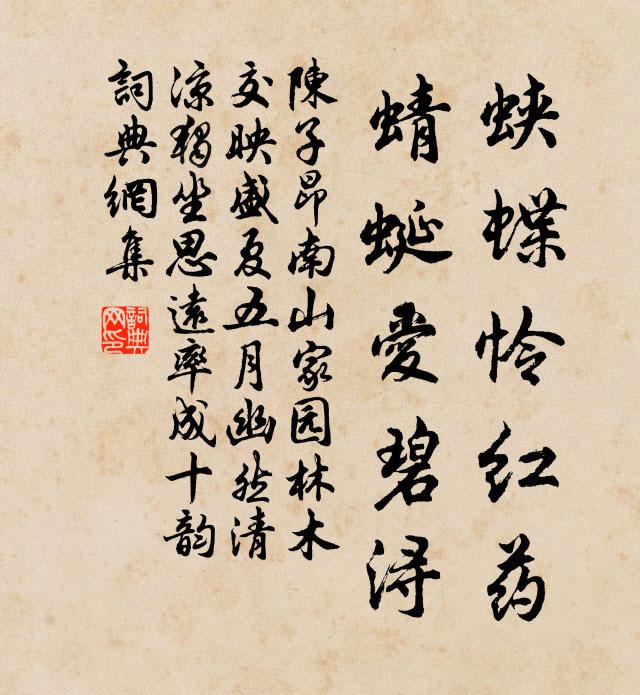 蛱蝶怜红药
蜻蜒愛碧潯
陳子昂南山家园林木
交映盛夏五月幽然清
凉獨坐思遠率成十韵
詞典網集
詞典
网印